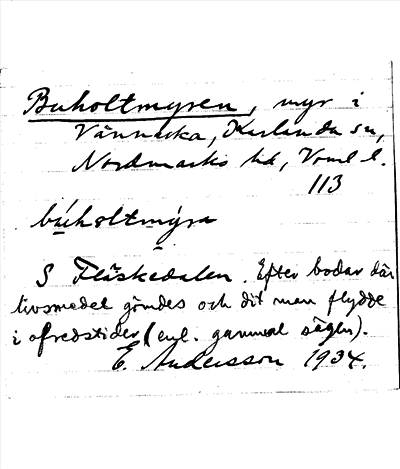 Buholtmyren, myr i
Vännacka, Karlanda sn,
Nordmarks hd, Vrml l.
113
bu̱holtmy̱ra
S Fläskedalen. Efter bodar där
livsmedel gömdes och dit man flydde
i ofredstider (enl. gammal sägen).
E. Andersson 1934.